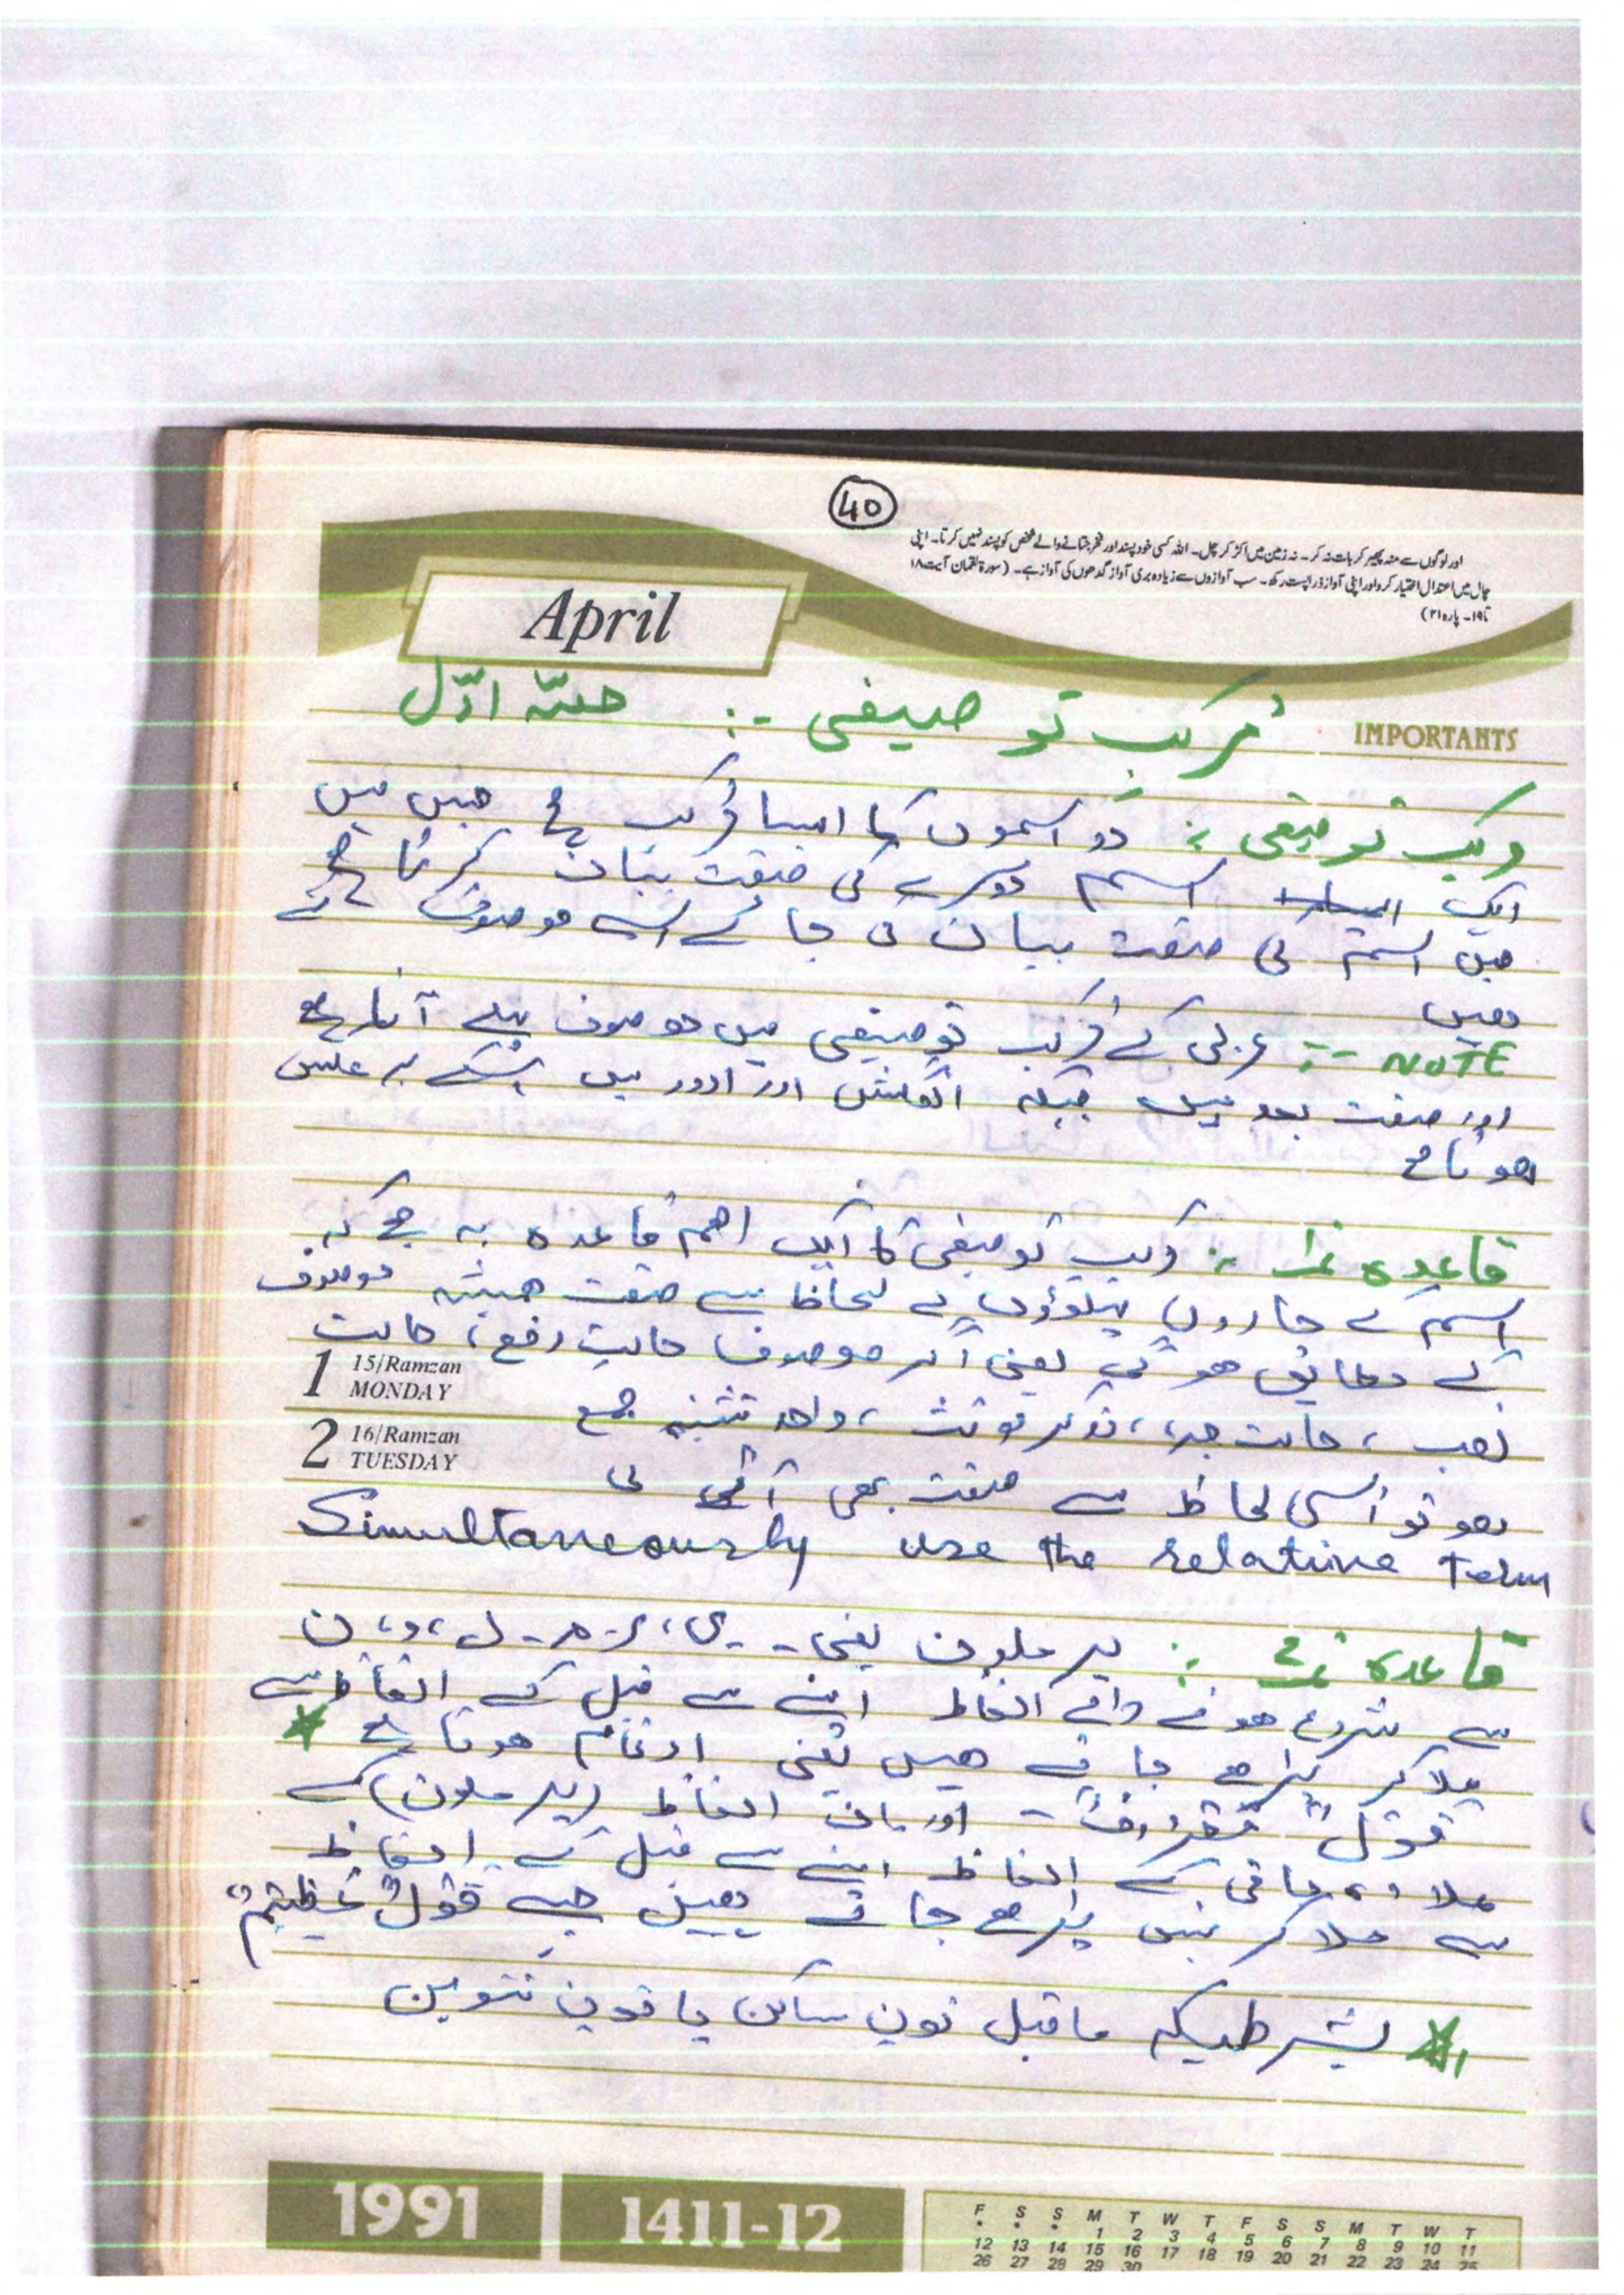 40
اور لوگوں سے منہ پھیر کر بات نہ کر۔ نہ زمین میں اکڑ کر چل۔ اللہ کسی خود پسند اور فخر جتانے والے شخص کو پسند نہیں کرتا۔ اپنی
چال میں اعتدال اختیار کر و اور اپنی آواز ذرا پست رکھ۔ سب آوازوں سے زیادہ بری آواز گدھوں کی آواز ہے۔ (سورۃ لقمان آیت ۱۸
تا ۱۹۔ پارہ ۲۱)
April
IMPORTANTS
مُرکب توصیفی :- حصّہ اوّل
مرکب توصیفی : دو اسموں کا ایسا مُرکب ہے جس میں
ایک اسم دوسرے کی صفت بیان کرتا ہے
جس اسم کی صفت بیان کی جائے اسے موصوف کہتے
ھیں
NOTE :- عربی کے مُرکب توصیفی میں موصوف پہلے آتا ہے
اور صفت بعد میں جبکہ انگلش اور اردو میں اسکے برعکس
ھوتا ہے
قاعدہ نمبر ۱ : مرکب توصیفی کا ایک اھم قاعدہ یہ ہے کہ
اسم کے چاروں پہلوؤں کے لحاظ سے صفت ھمیشہ موصوف
کے مطابق ھو گی یعنی اگر موصوف حالتِ رفع، حالت
1 15/Ramzan MONDAY
نصب، حالت جر، مذکر مونث، واحد تثنیہ جمع
2 16/Ramzan TUESDAY
ھو تو اُسی لحاظ سے صفت بھی آئے گی
Simultaneously use the relative term
قاعدہ نمبر ۲ : یرملون یعنی - ی، ر - م - ل، و، ن
سے شروع ھونے والے الفاظ اپنے سے قبل کے الفاظ سے
ملا کر پڑھے جاتے ھیں یعنی ادغام ھوتا ہے
قولٌ - اور باقی الفاظ (یرملون) کے
علاوہ باقی کے الفاظ اپنے سے قبل کے الفاظ
سے ملا کر نہیں پڑھے جاتے ھیں جیسے قولٌ عظیمٌ
بشرطیکہ ماقبل نون ساکن یا نون تنوین
1991
1411-12
F S S M T W T F S S M T W T
* * * 1 2 3 4 5 6 7 8 9 10 11
12 13 14 15 16 17 18 19 20 21 22 23 24 25
26 27 28 29 30